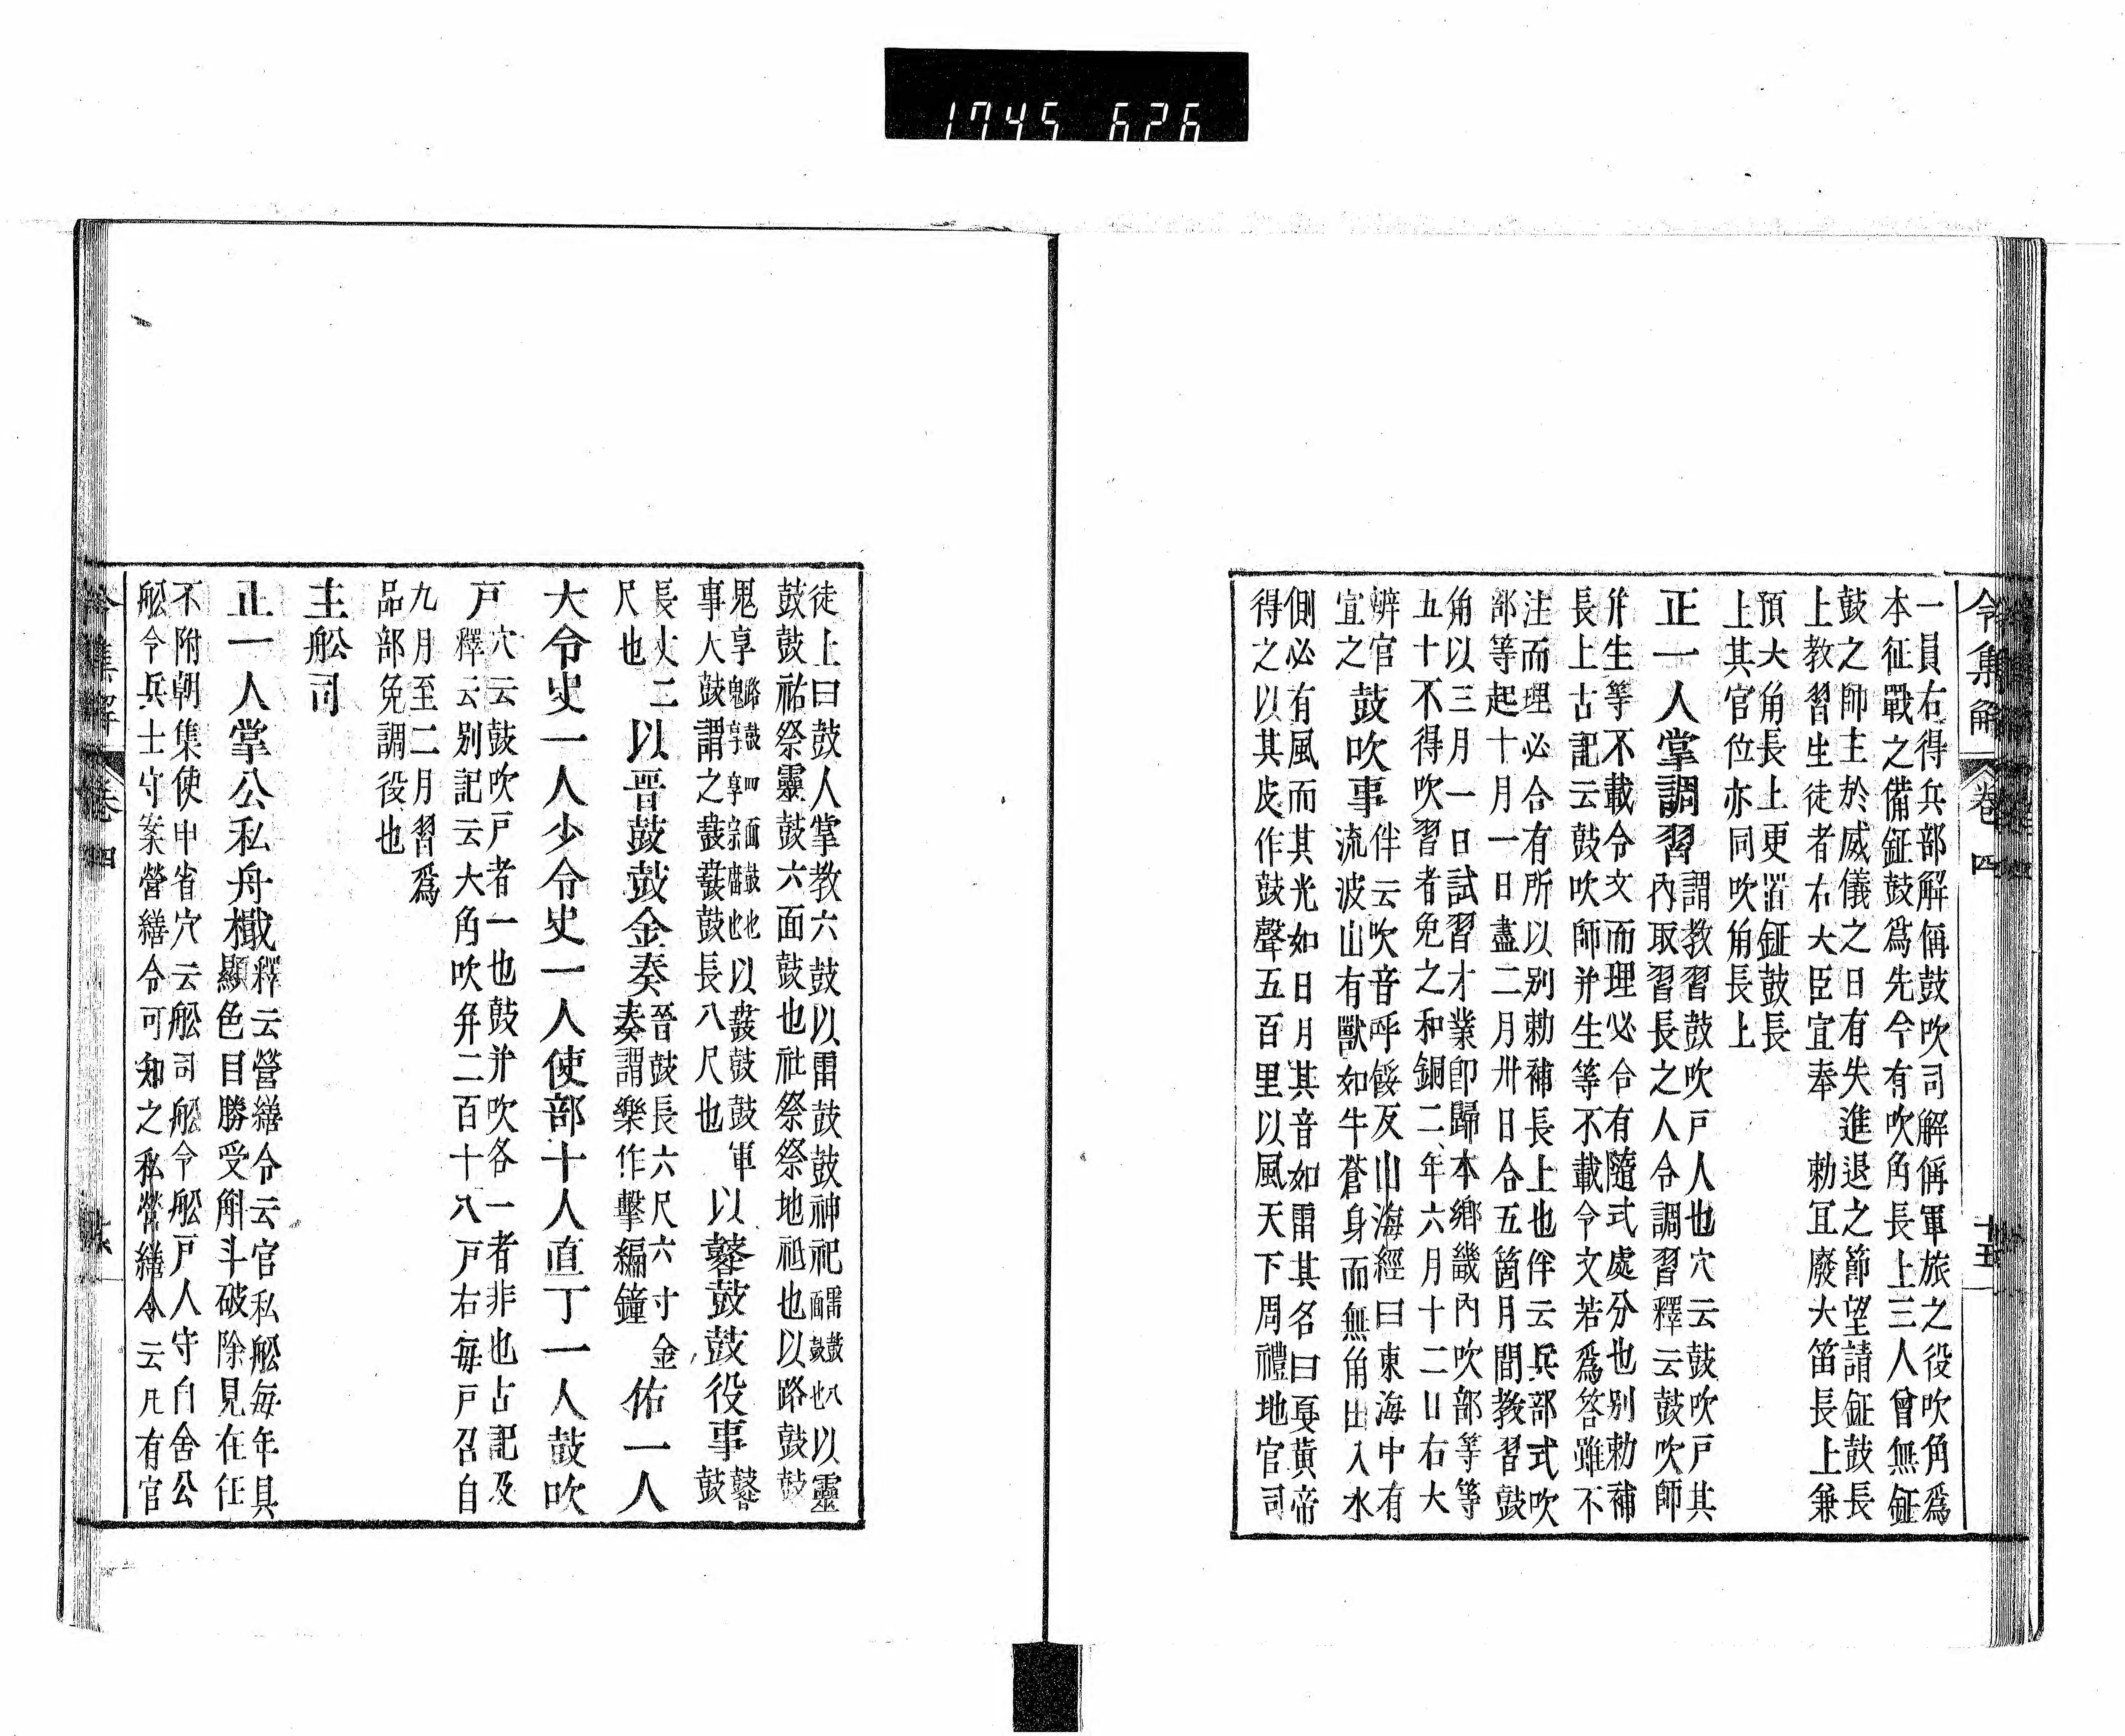 1745 626
令集解 卷四 十五
一員右得兵部解偁鼓吹司解偁軍旅之役吹角爲
本征戰之備鉦鼓爲先今有吹角長上三人曾無鉦
鼓之師主於威儀之日有失進退之節望請鉦鼓長
上教習生徒者右大臣宜奉 勅宜廢大笛長上兼
預大角長上更置鉦鼓長
上其官位亦同吹角長上
正一人掌調習
謂教習鼓吹戸人也穴云鼓吹戸其
內取習習長之人令調習釋云鼓吹師
并生等不載令文而理必合有隨式處分也別勅補
長上古記云鼓吹師并生等不載令文若爲答雖不
注而理必合有所以別勅補長上也伴云兵部式吹
部等起十月一日盡二月卅日合五箇月間教習鼓
角以三月一日試習才業卽歸本鄉畿內吹部等等
五十不得吹習者免之和銅二年六月十二日右大
辨官
宜之
鼓吹事
伴云吹音呼餧反山海經曰東海中有
流波山有獸如牛蒼身而無角出入水
側必有風而其光如日月其音如雷其名曰夔黃帝
得之以其皮作鼓聲五百里以風天下周禮地官司
徒上曰鼓人掌教六鼓以雷鼓鼓神祀
雷鼓八
面鼓也
以靈
鼓鼓祐祭靈鼓六面鼓也社祭祭地祇也以路鼓鼓
鬼享
路鼓四面鼓也
鬼享享宗庿也
以鼖鼓鼓軍
事大鼓謂之鼖鼖鼓長八尺也
以鼛鼓鼓役事
鼛
鼓
長丈二
尺也
以晋鼓鼓金奏
晉鼓長六尺六寸金
奏謂樂作擊編鐘
佑一人
大令史一人少令史一人使部十人直丁一人鼓吹
戸
穴云鼓吹戸者一也鼓并吹各一者非也古記及
釋云別記云大角吹并二百十八戸右毎戸召自
九月至二月習爲
品部免調役也
主舩司
正一人掌公私舟檝
釋云營繕令云官私舩毎年具
顯色目勝受斛斗破除見在任
不附朝集使申省穴云舩司舩令舩戸人守自舍公
舩令兵士守案營繕令可知之私營繕令云凡有官